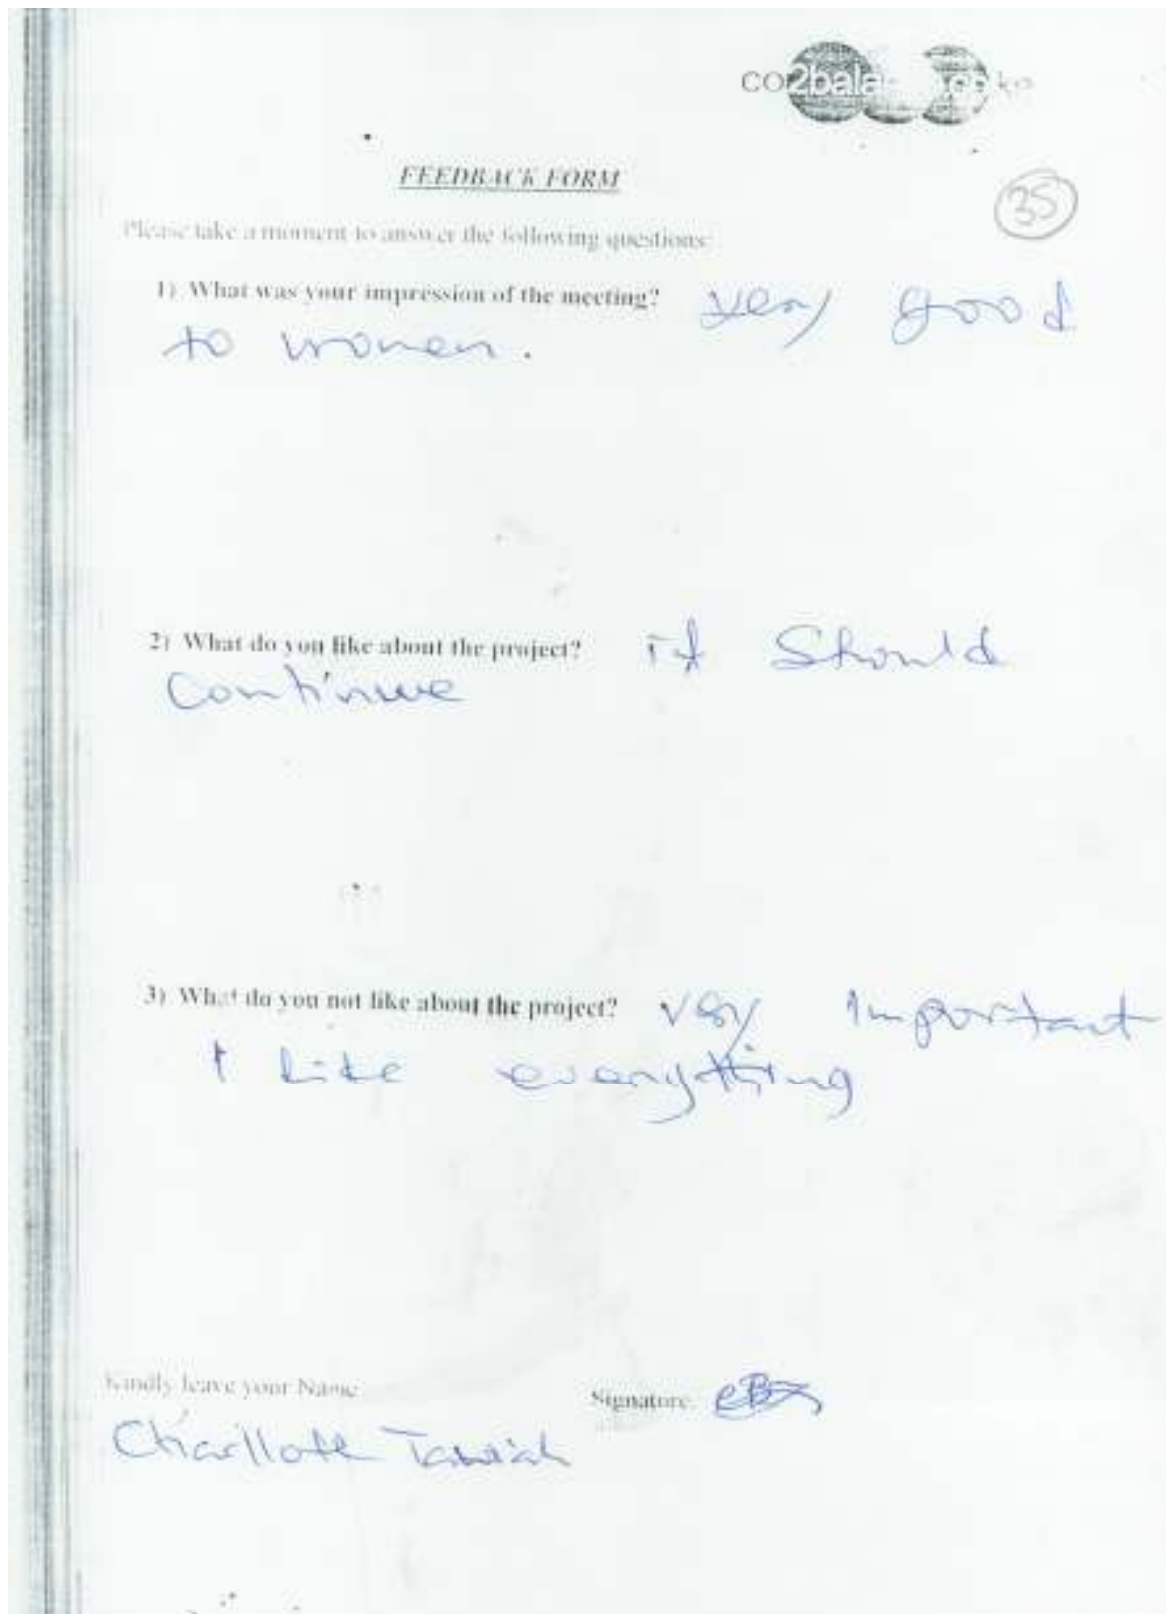 FEEDBACK FORM
35
Please take a moment to answer the following questions:
1) What was your impression of the meeting? very good
to women.
2) What do you like about the project? it should
continue
3) What do you not like about the project? very important
I like everything
Kindly leave your Name
Signature
Charllote Tawiah